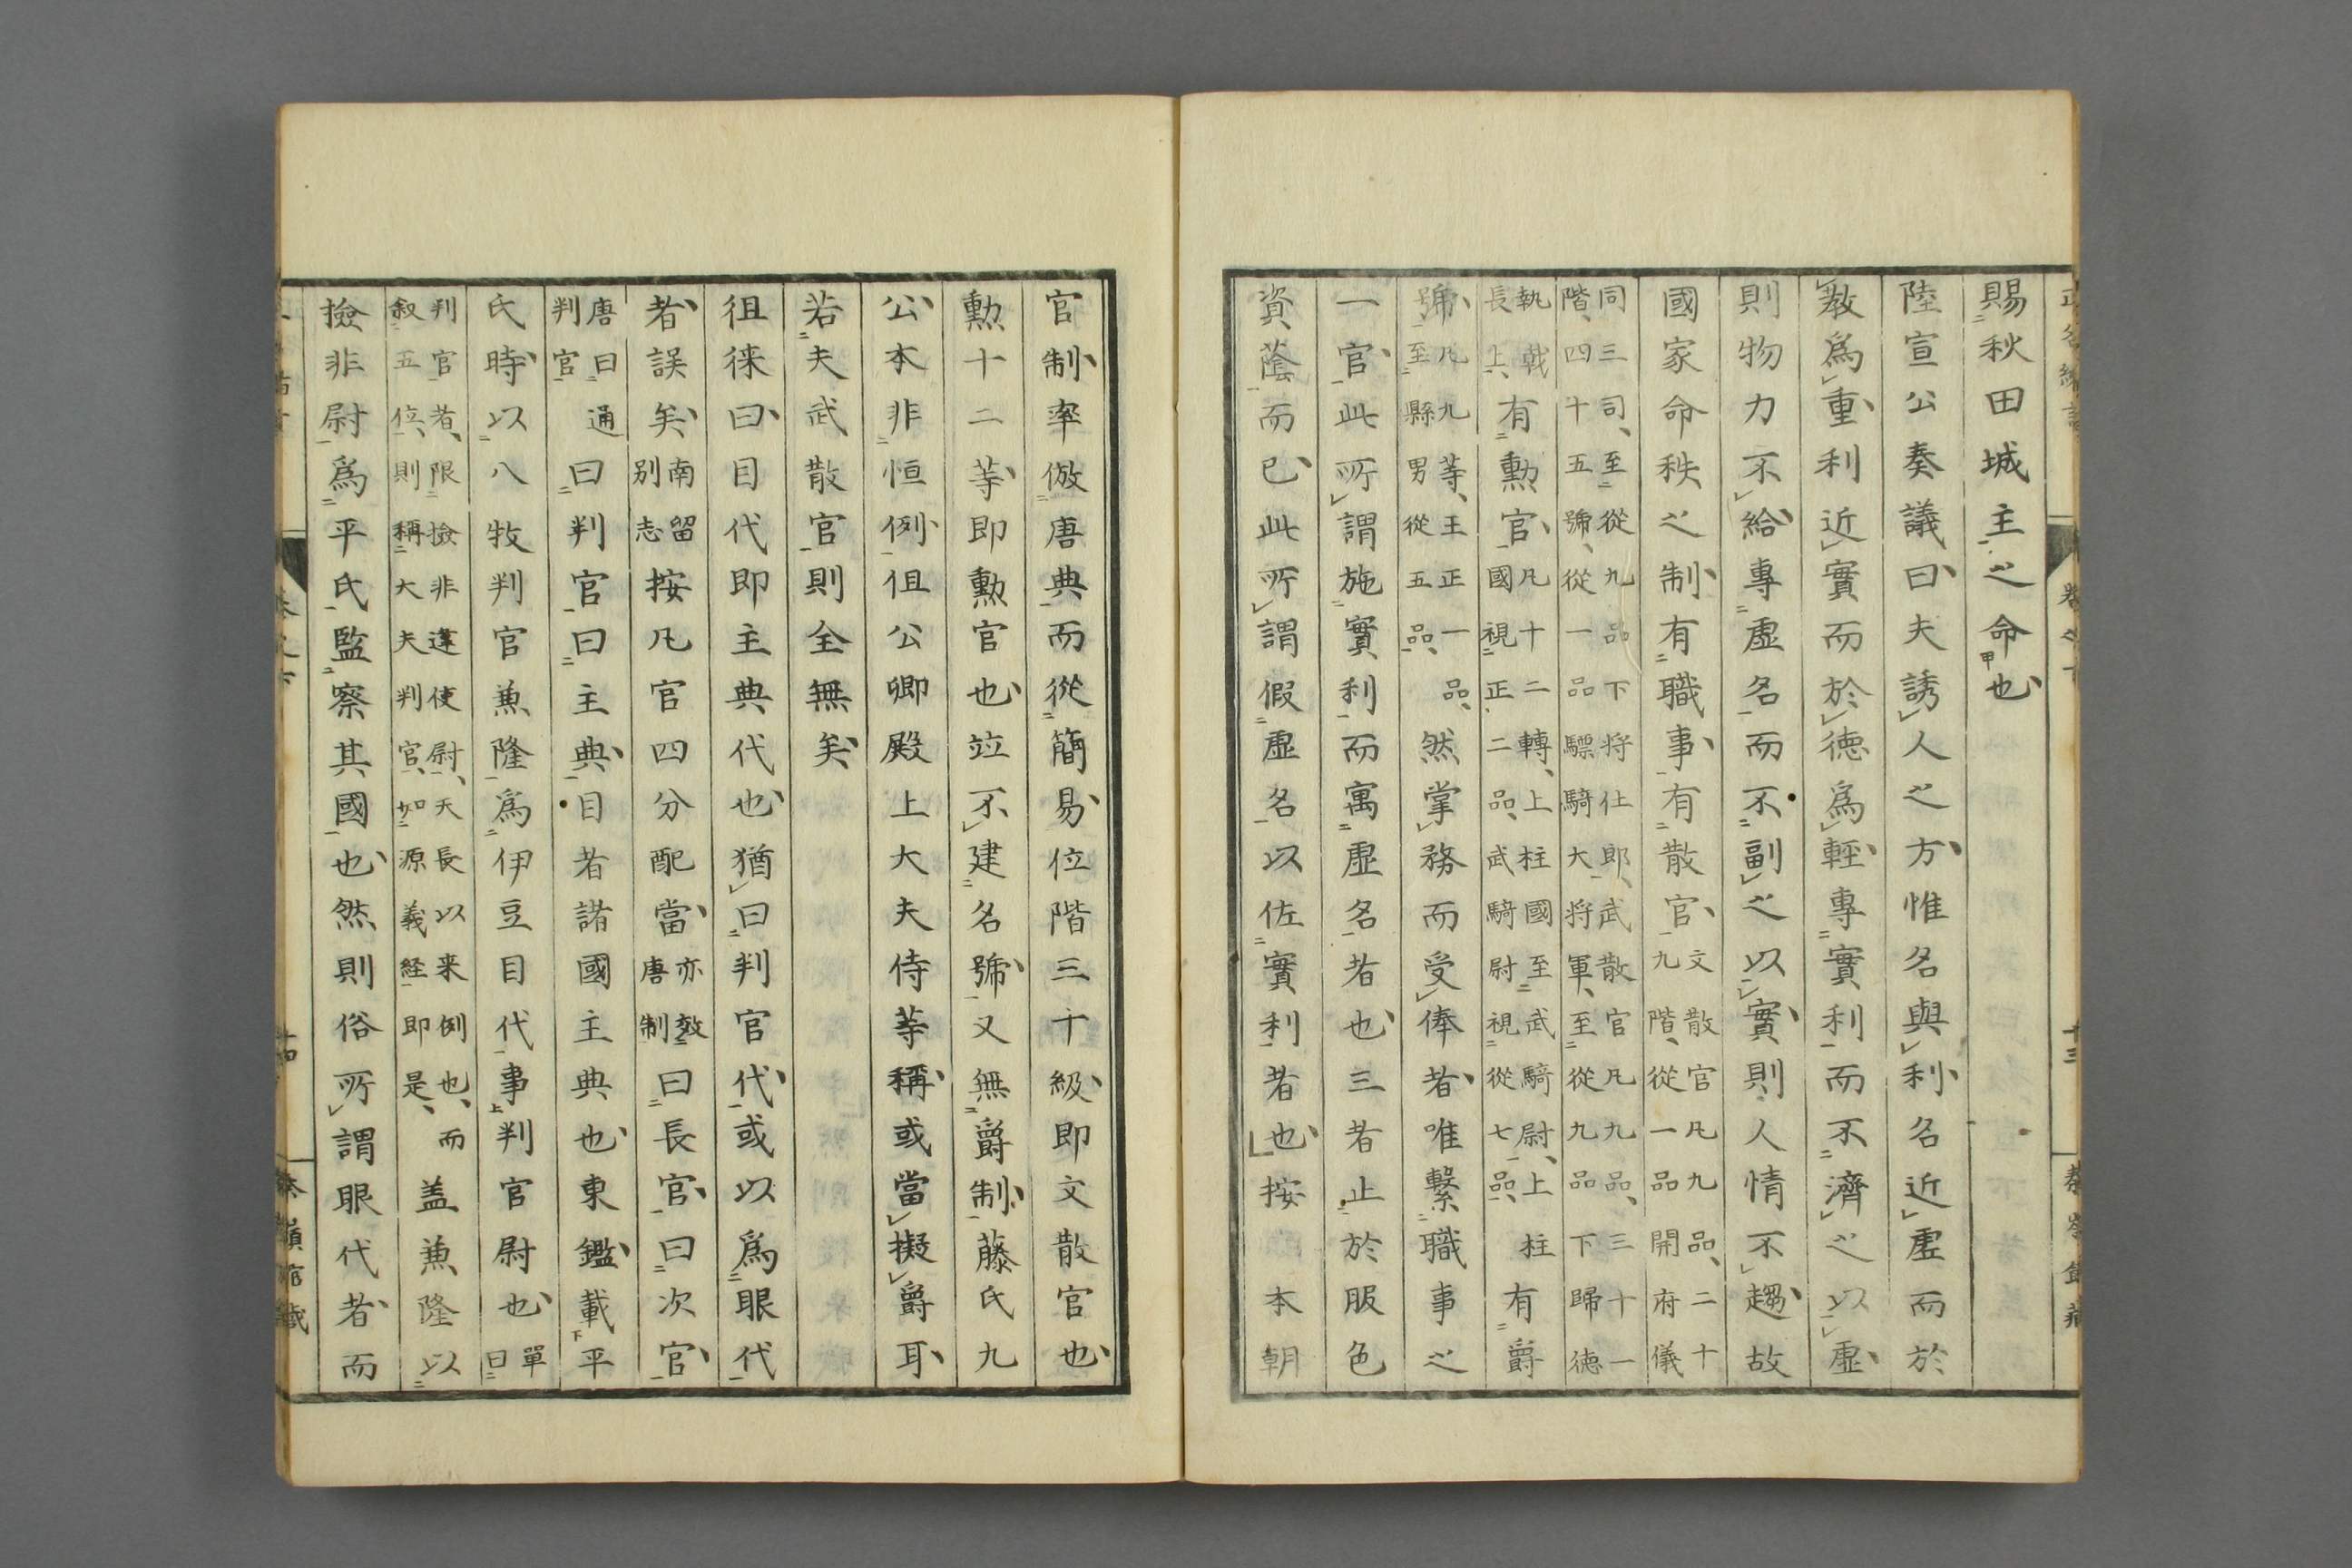 賜秋田城主之命也
陸宣公奏議曰夫誘人之方惟名與利名近虛而於
教爲重利近實而於徳爲輕專實利而不濟之以虛
則物力不給專虛名而不副之以實則人情不趨故
國家命秩之制有職事有散官文散官凡九品二十
九階從一品開府儀
同三司至從九品下将仕郎武散官凡九品三十一
階四十五號從一品驃騎大将軍至從九品下歸徳
執戟
長上有勲官凡十二轉上柱國至武騎尉上柱
國視正二品武騎尉視從七品有爵
凡九等王正一品
號至縣男從五品然掌務而受俸者唯繋職事之
一官此所謂施實利而寓虛名者也三者止於服色
資蔭而已此所謂假虛名以佐實利者也按本朝
官制率倣唐典而從簡易位階三十級即文散官也
勲十二等即勲官也竝不建名號又無爵制藤氏九
公本非恒例但公卿殿上大夫侍等稱或當擬爵耳
若夫武散官則全無矣
徂徠曰目代即主典代也猶曰判官代或以爲眼代
者誤矣南留
別志按凡官四分配當亦效
唐制曰長官曰次官
唐曰通
判官曰判官曰主典目者諸國主典也東鑑載平
氏時以八牧判官兼隆爲伊豆目代事判官尉也單
曰
判官者限撿非違使尉天長以来例也而
叙五位則稱大夫判官如源義経即是盖兼隆以
撿非尉爲平氏監察其國也然則俗所謂眼代者而